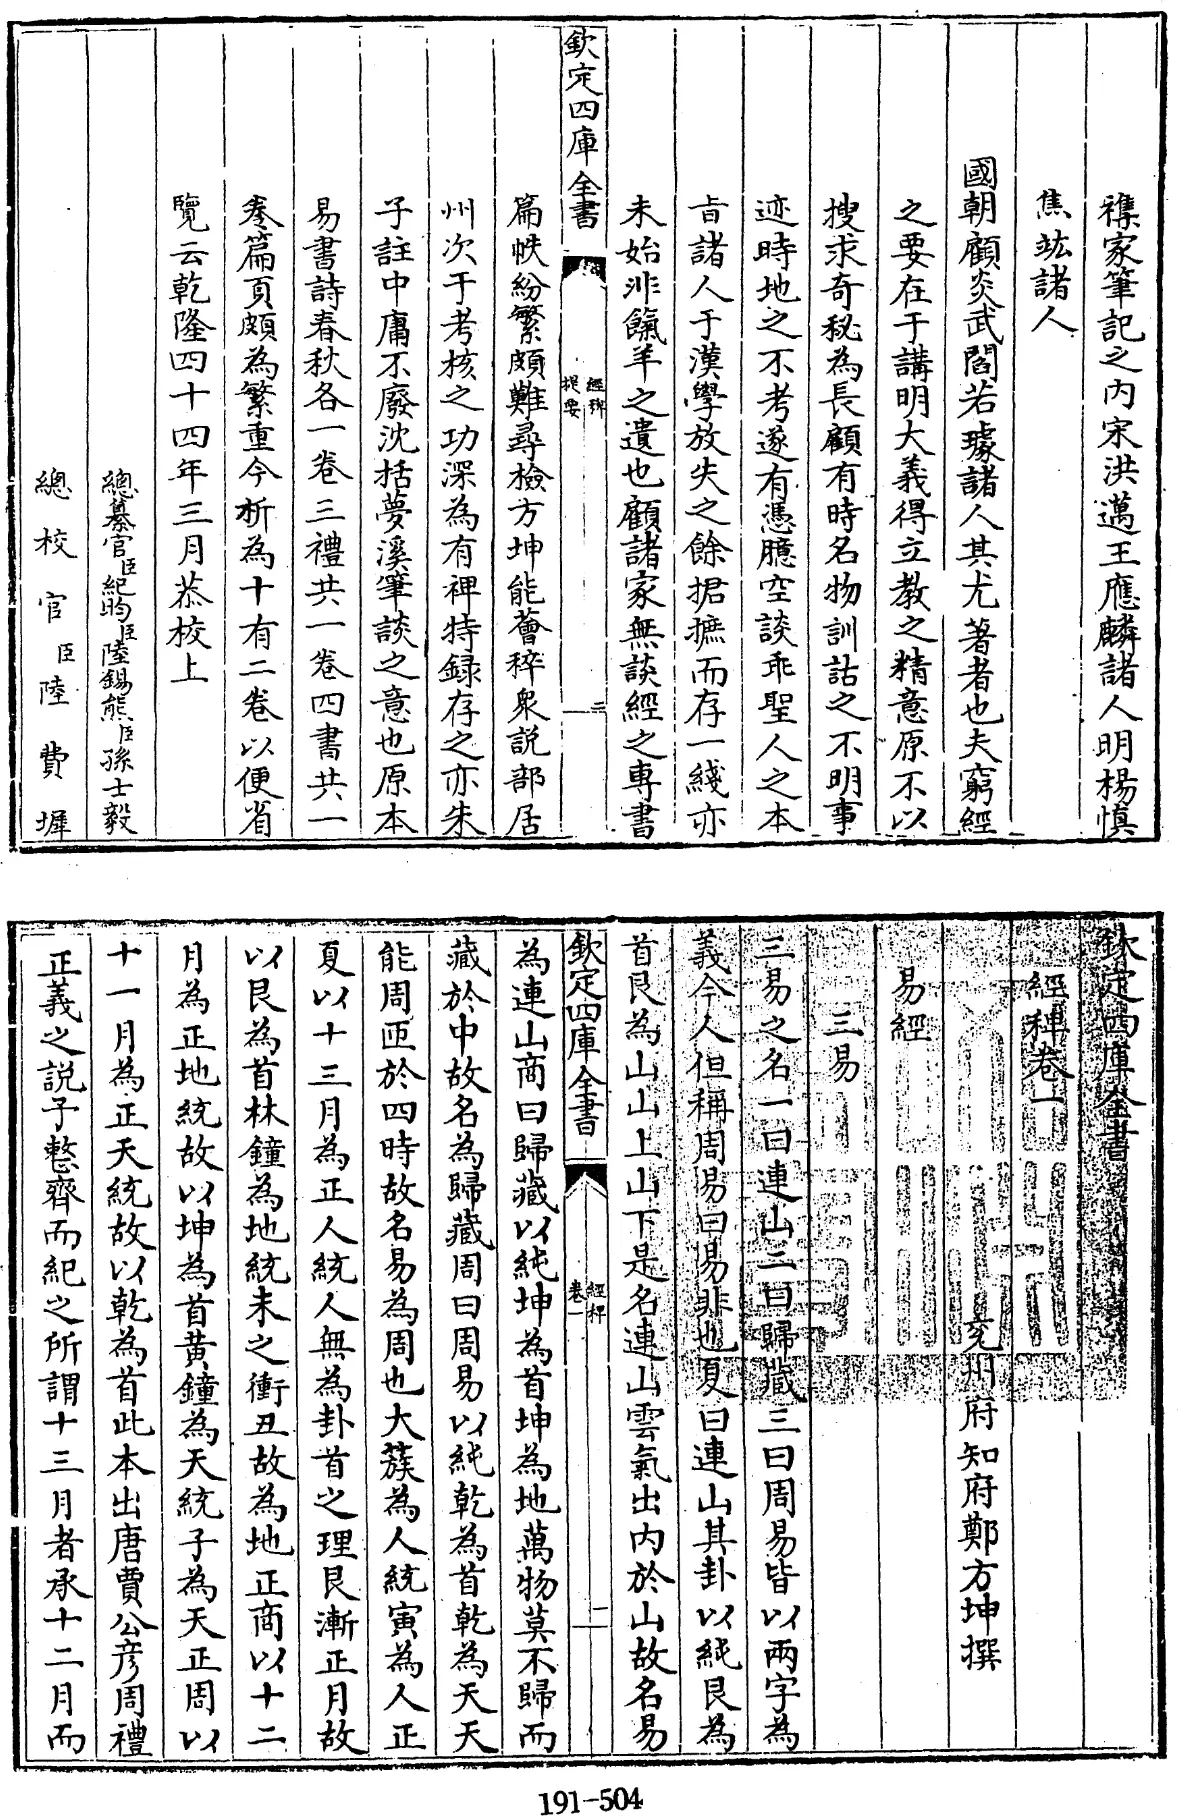 襍家筆記之内宋洪邁王應麟諸人明楊慎
焦竑諸人
國朝顧炎武閻若璩諸人其尤著者也夫窮經
之要在于講明大義得立教之精意原不以
搜求奇秘為長顧有時名物訓詁之不明事
迹時地之不考遂有憑臆空談乖聖人之本
旨諸人于漢學放失之餘捃摭而存一綫亦
未始非餼羊之遺也顧諸家無談經之專書
欽定四庫全書
經稗
提要
二
篇帙紛繁頗難尋檢方坤能薈稡衆說部居
州次于考核之功深為有裨特録存之亦朱
子註中庸不廢沈括夢溪筆談之意也原本
易書詩春秋各一卷三禮共一卷四書共一
卷篇頁頗為繁重今析為十有二卷以便省
覽云乾隆四十四年三月恭校上
總纂官臣紀昀臣陸錫熊臣孫士毅
總校官臣陸費墀
欽定四庫全書
經稗卷一
兖州府知府鄭方坤撰
易經
三易
三易之名一曰連山二曰歸藏三曰周易皆以兩字為
義今人但稱周易曰易非也夏曰連山其卦以純艮為
首艮為山山上山下是名連山雲氣出内於山故名易
欽定四庫全書
經稗
卷一
一
為連山商曰歸藏以純坤為首坤為地萬物莫不歸而
藏於中故名為歸藏周曰周易以純乾為首乾為天天
能周匝於四時故名易為周也大蔟為人統寅為人正
夏以十三月為正人統人無為卦首之理艮漸正月故
以艮為首林鐘為地統未之衝丑故為地正商以十二
月為正地統故以坤為首黄鐘為天統子為天正周以
十一月為正天統故以乾為首此本出唐賈公彦周禮
正義之說予整齊而紀之所謂十三月者承十二月而
191-504